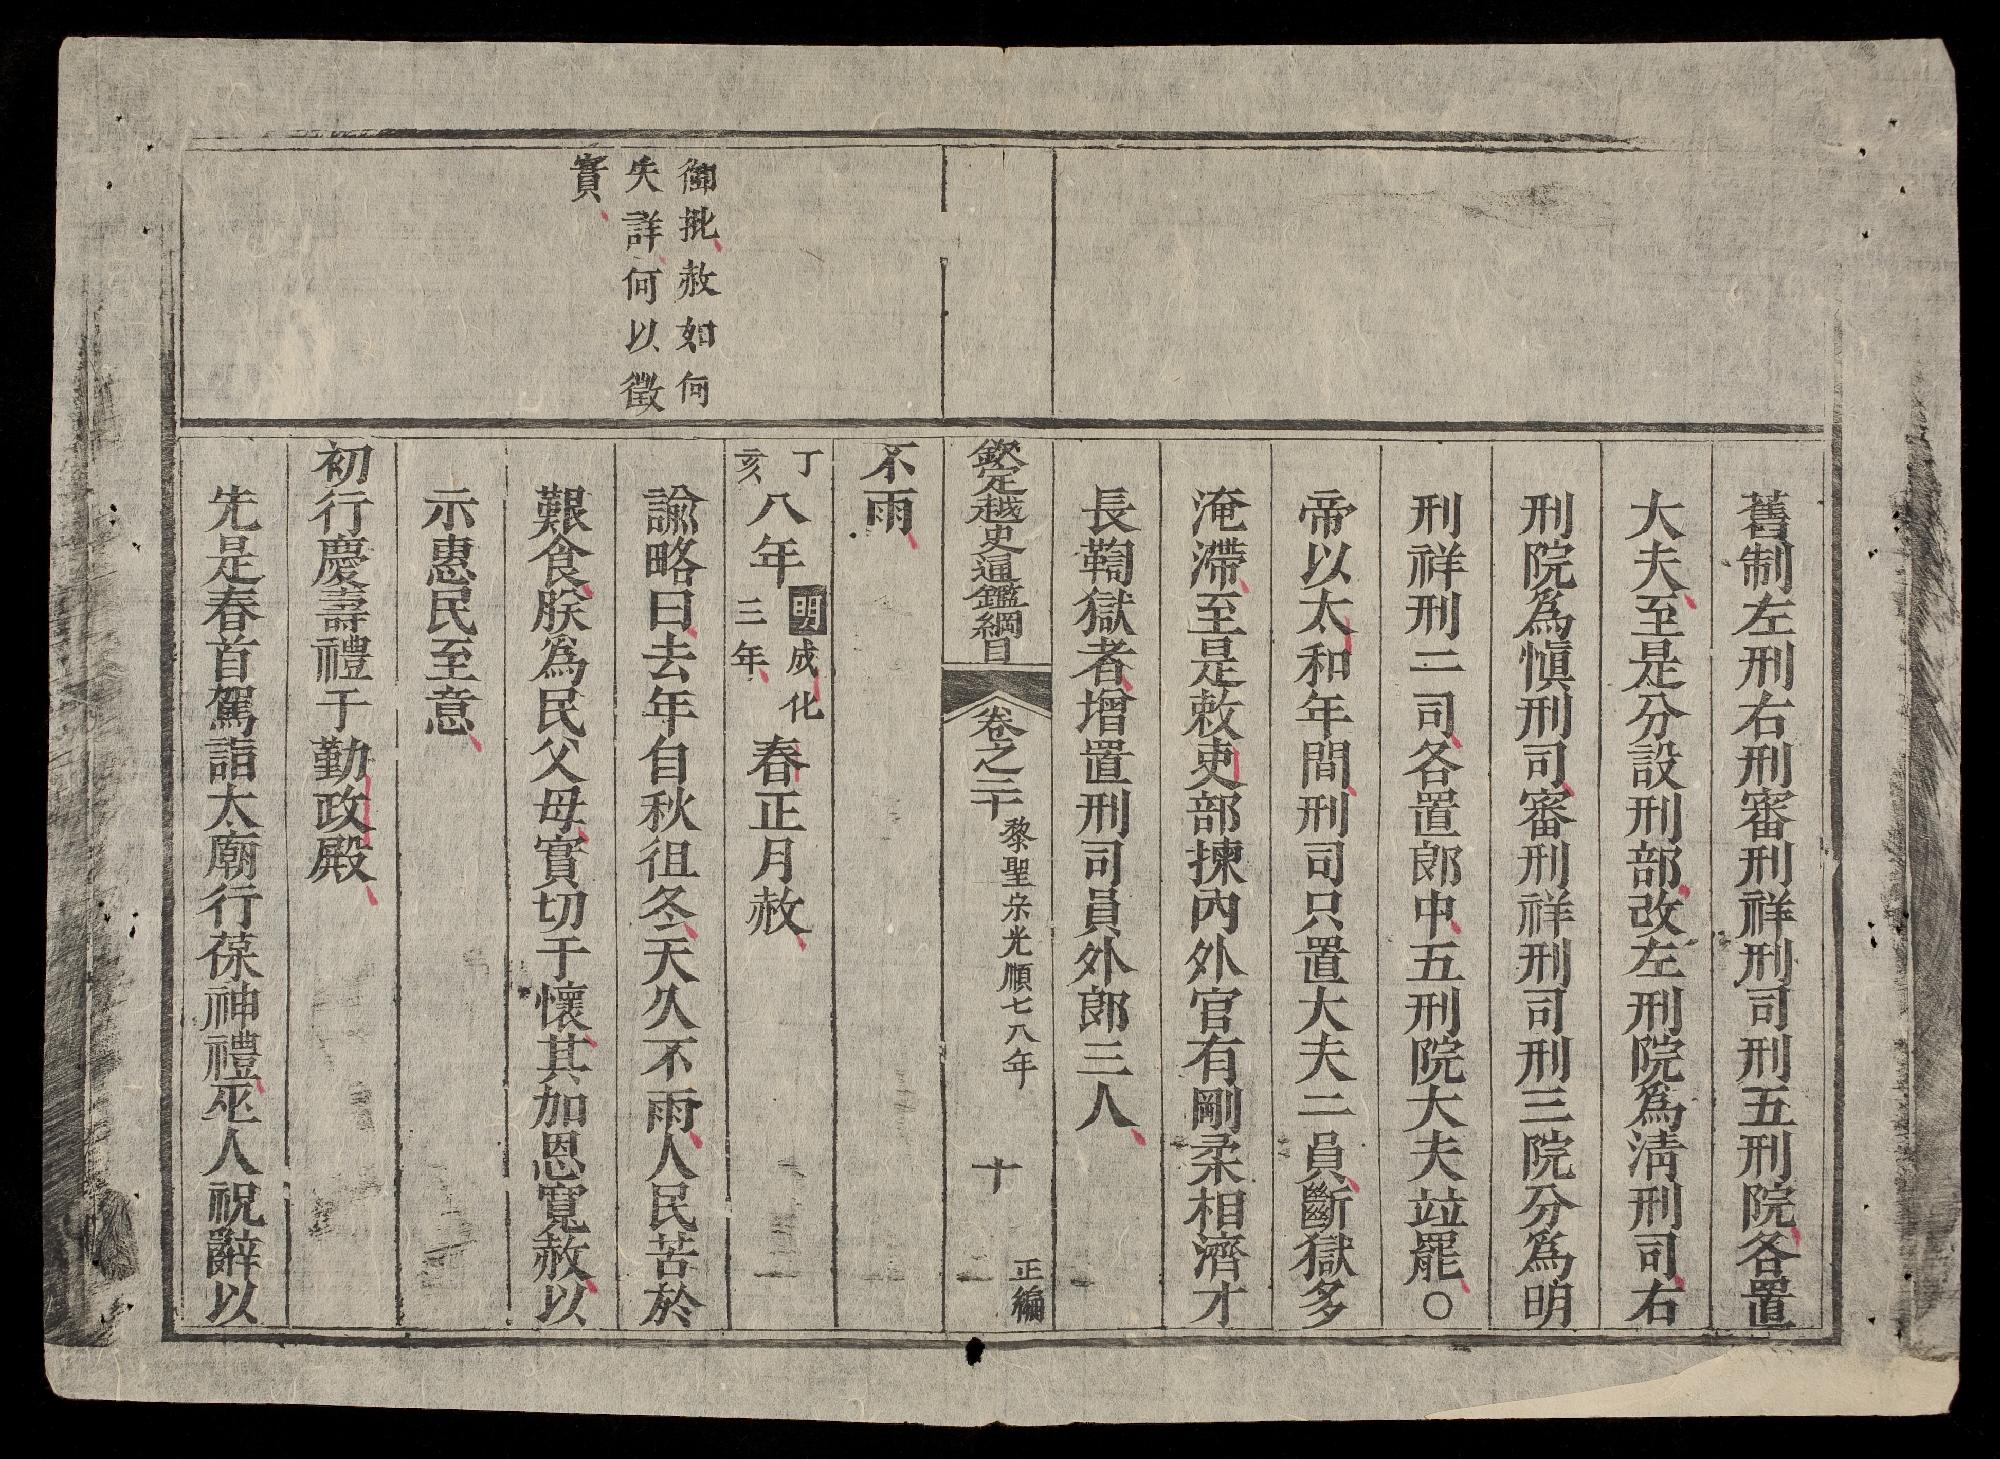 舊制左刑右刑審刑祥刑司刑五刑院各置
大夫至是分設刑部改左刑院爲淸刑司右
刑院爲愼刑司審刑祥刑司刑三院分爲明
刑祥刑二司各置郎中五刑院大夫竝罷○
帝以太和年間刑司只置大夫二員斷獄多
淹滯至是敕吏部揀內外官有剛柔相濟才
長鞫獄者增置刑司員外郎三人
欽定越史通鑑綱目 卷之二十 黎聖宗光順七八年 十 正編
不雨
丁亥八年明成化三年春正月赦
御批赦如何
失詳何以徵
實
諭略曰去年自秋徂冬天久不雨人民苦於
艱食朕爲民父母實切于懷其加恩寬赦以
示惠民至意
初行慶壽禮于勤政殿
先是春首駕詣太廟行葆神禮巫人祝辭以